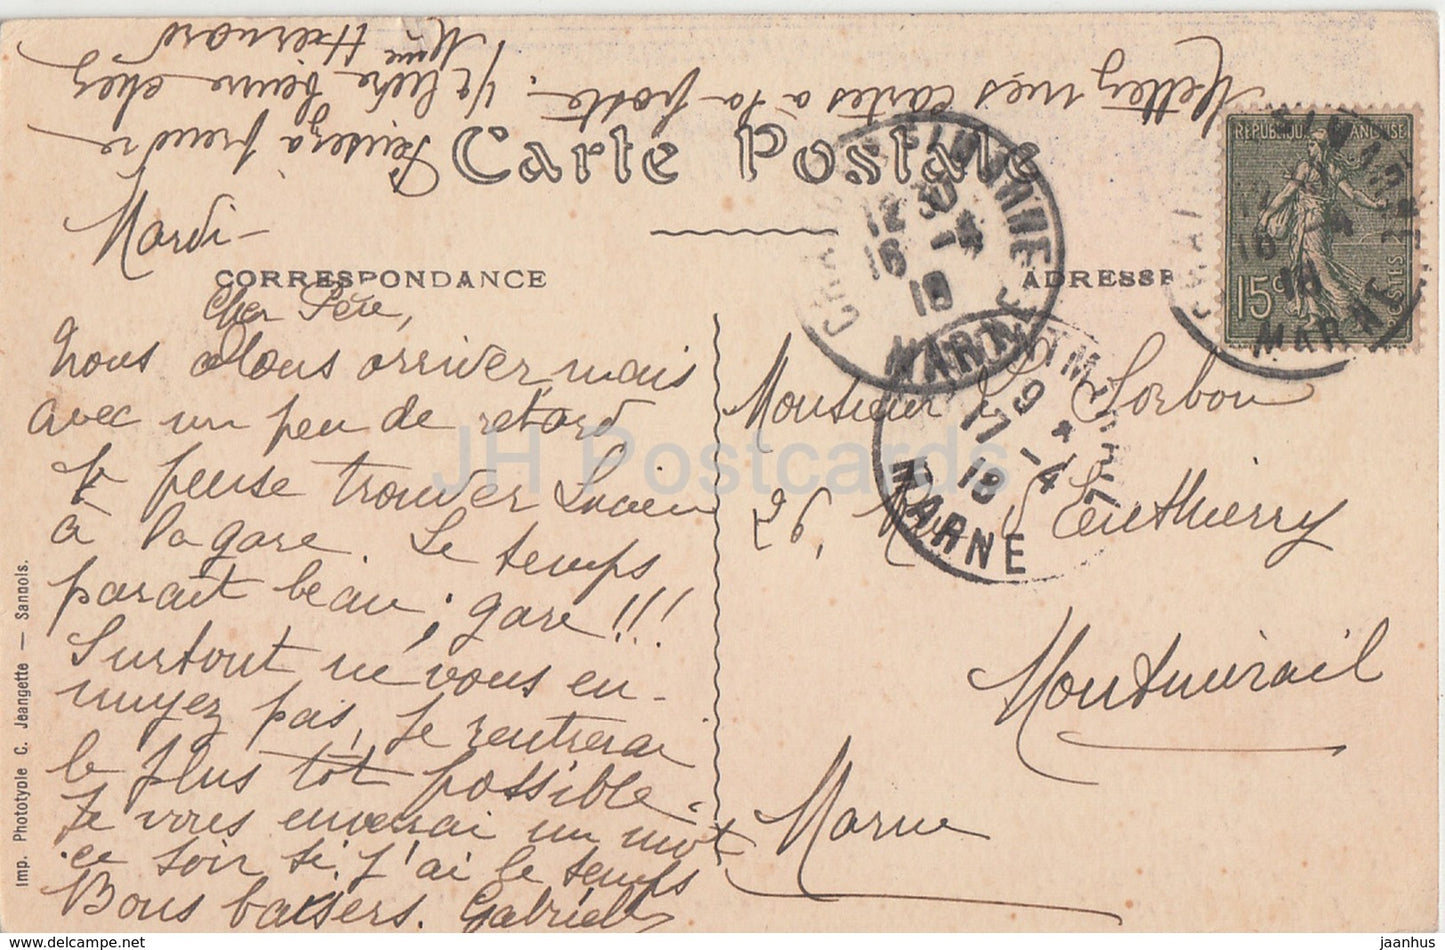 Mettez mes cartes à la poste.
Pensez à prendre
1/2 livre beurre chez
Mme
Carte Postale
Mardi -
CORRESPONDANCE
ADRESSE
RÉPUBLIQUE FRANÇAISE
15c
POSTES
12 30
16 -4
18
MARNE
MONTMIRAIL
9
17 -4
18
MARNE
Cher Père,
Nous allons arriver mais
avec un peu de retard
Je pense trouver Lucien
à la gare. Le temps
parait beau ; gare !!!
Surtout ne vous en-
nuyez pas, Je rentrerai
le plus tôt possible.
Je vous enverrai un mot
ce soir si j'ai le temps
Bons baisers. Gabrielle
Monsieur Sorbon
26, Rue
Montmirail
Marne
Imp. Phototypie C. Jeangette — Sannois.
JH Postcards
jaanhus — delcampe.net